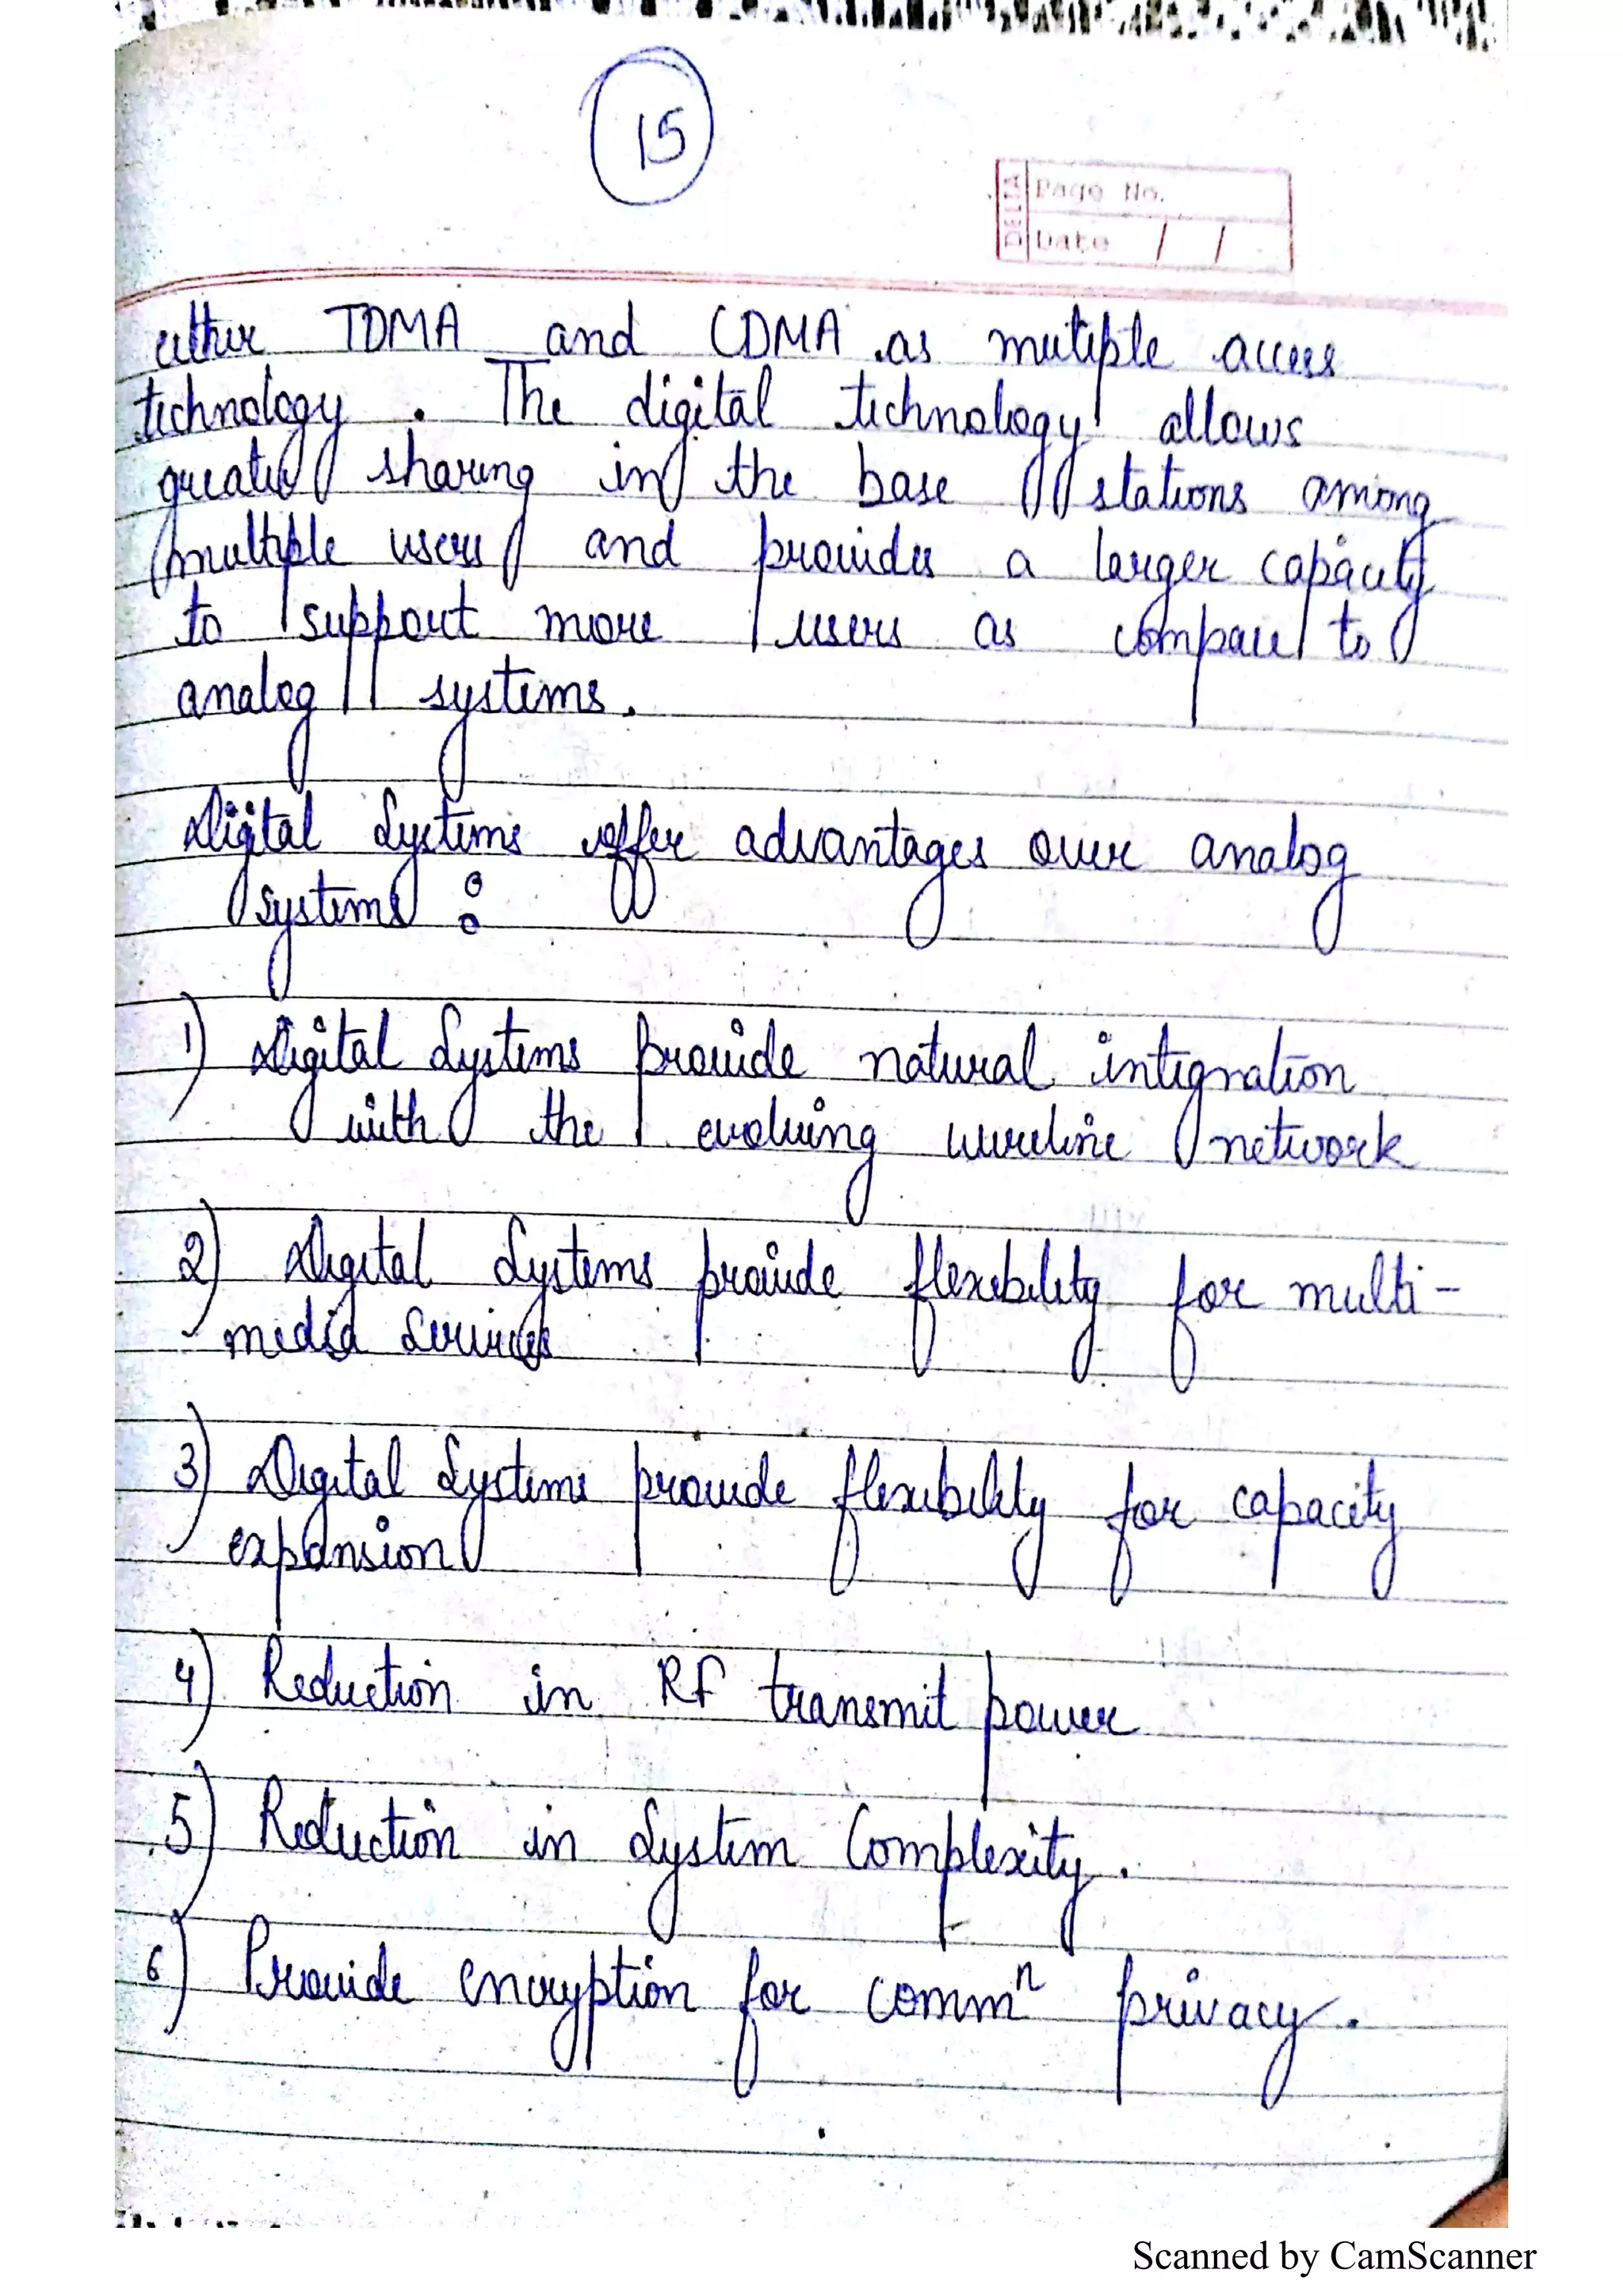 15
DELTA
Page No.
Date / /
either TDMA and CDMA as mutiple access
technology. The digital technology allows
greater sharing in the base stations among
multiple users and provides a larger capacity
to support more users as compare to
analog systems.
Digital Systems offer advantages over analog
systems :
1) Digital Systems provide natural integration
with the evolving wireline network
2) Digital Systems provide flexibility for multi-
media Services
3) Digital Systems provide flexibility for capacity
expansion
4) Reduction in RF transmit power
5) Reduction in System Complexity.
6) Provide encryption for commⁿ privacy.
Scanned by CamScanner